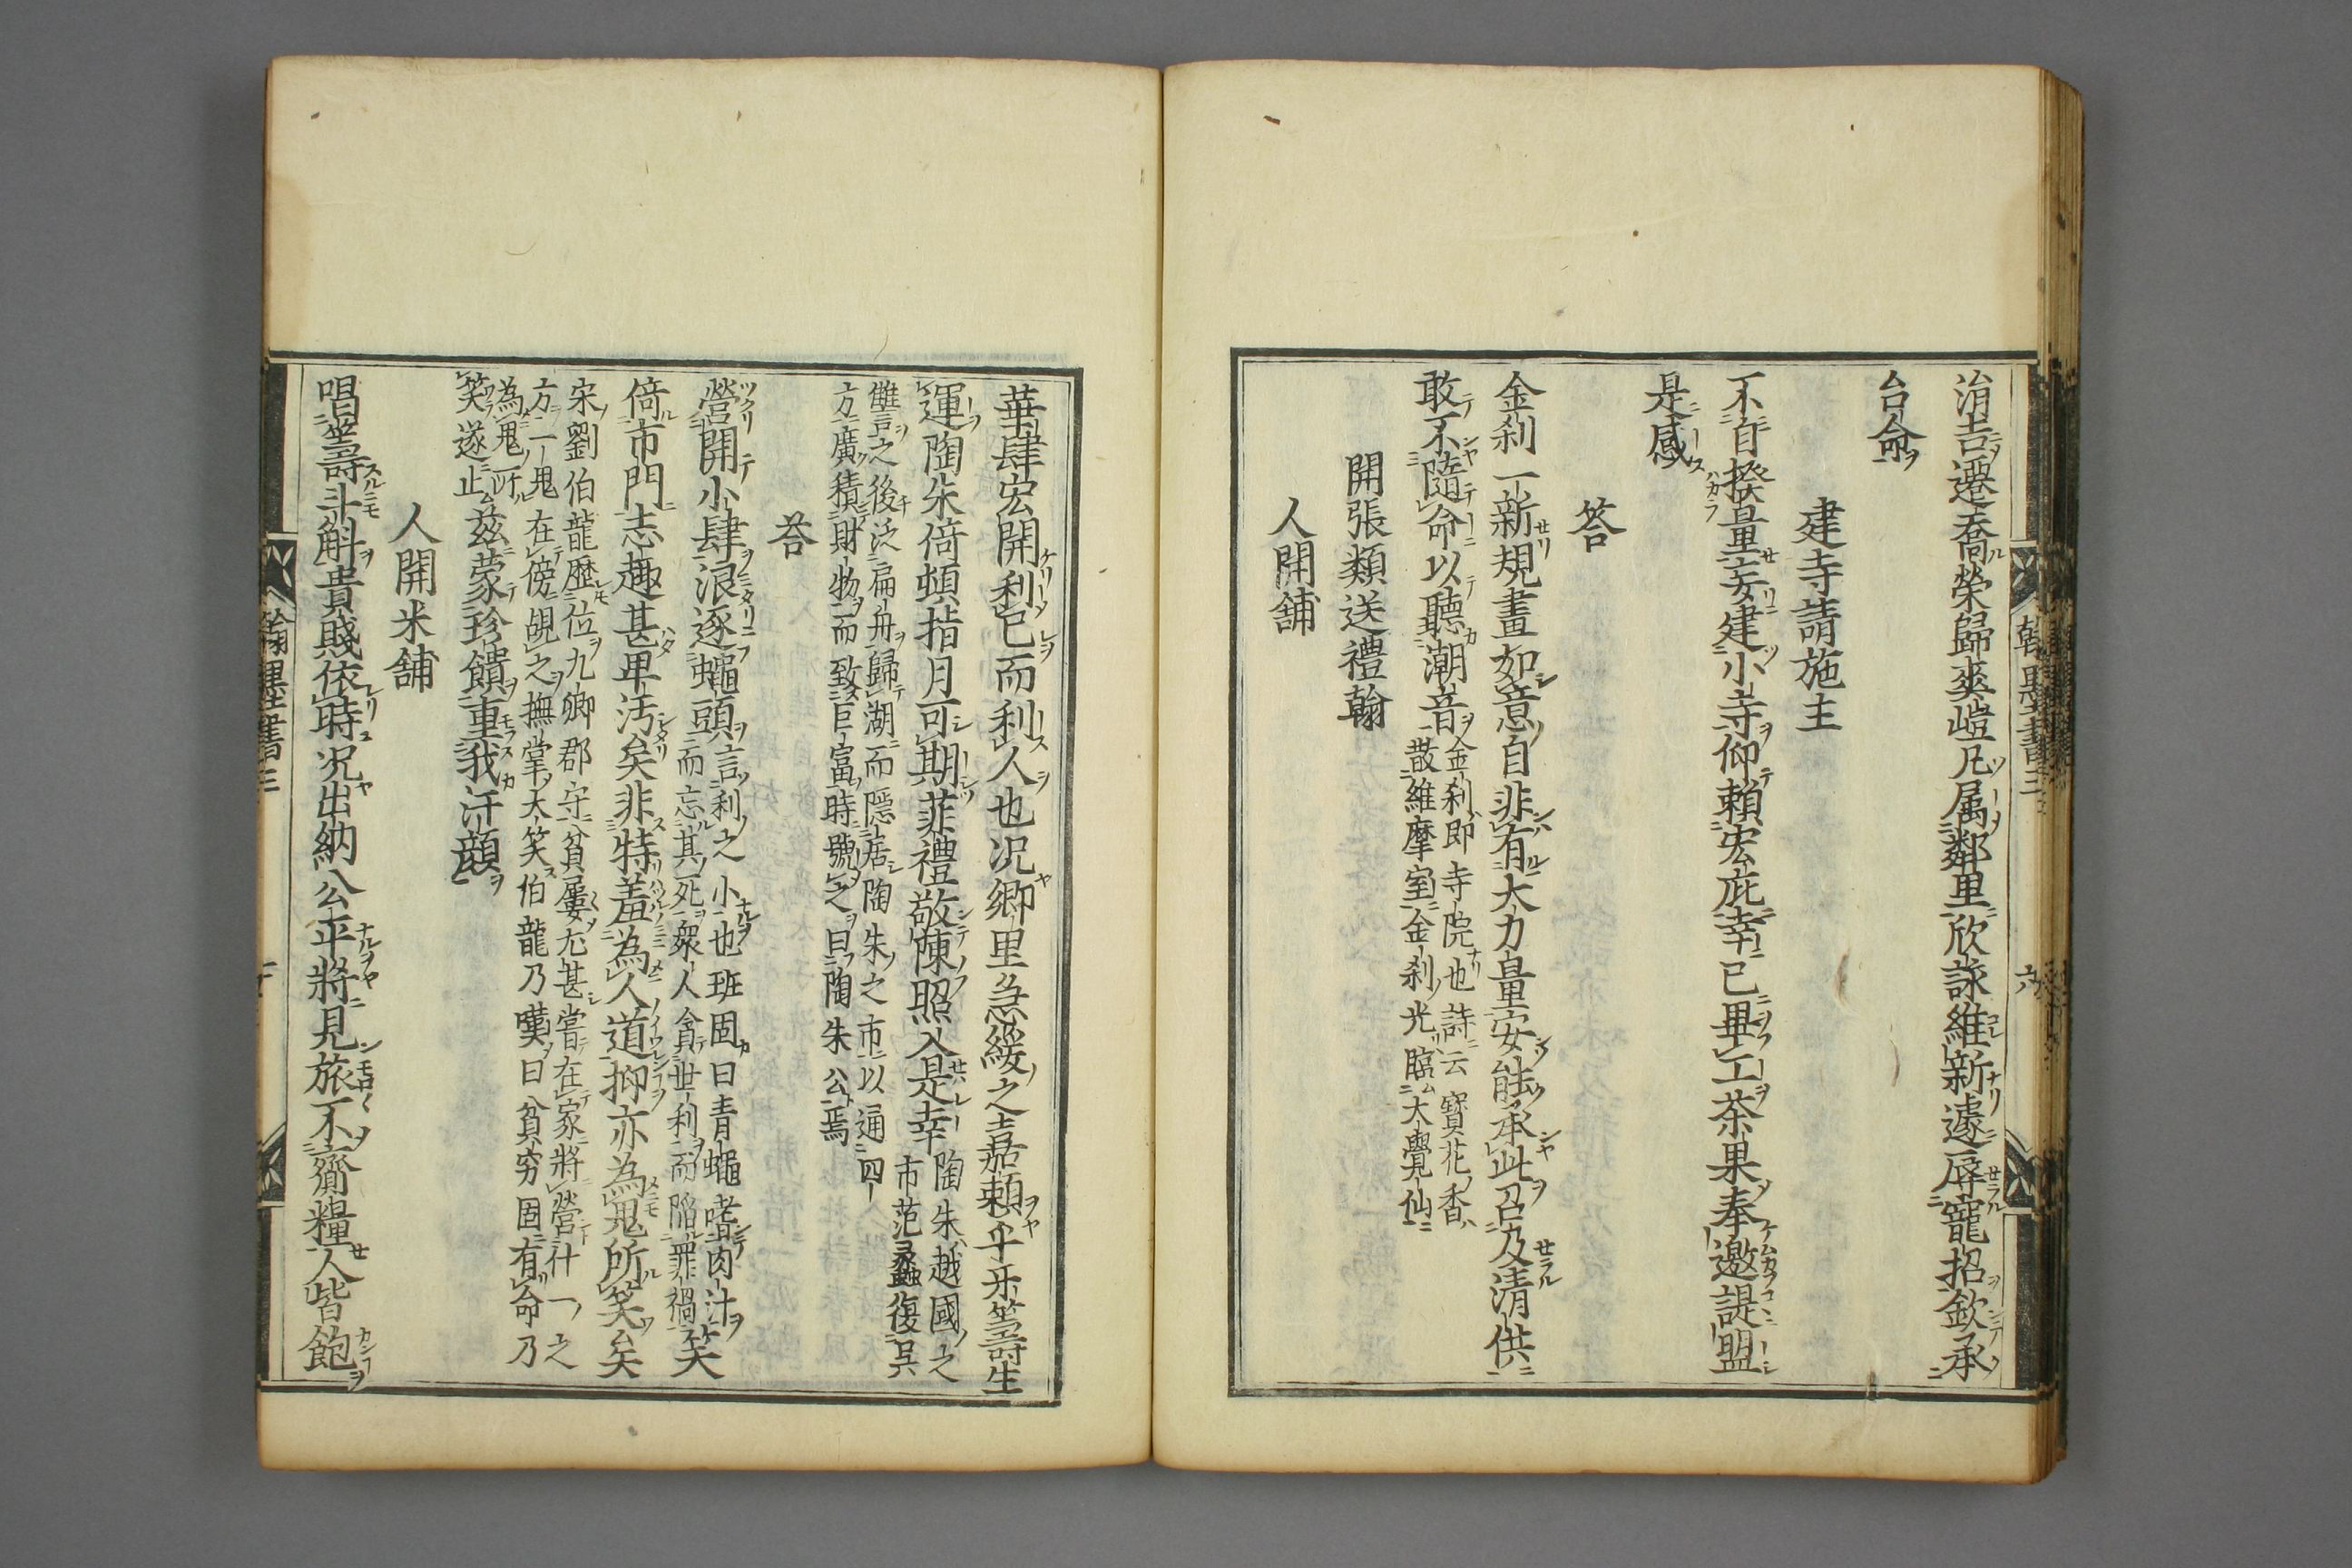 涓吉遷喬榮歸爽塏凡属鄰里欣詠維新遽辱寵招欽承
台命
建寺請施主
不自揆量妄建小寺仰賴宏庇幸已畢工茶果奉邀諟盟
是感
答
金刹一新規畫如意自非有大力量安能承此召及清供
敢不隨命以聽潮音
金刹即寺院也詩云寶花香
散維摩室金刹光臨大覺仙
開張類送禮翰
人開舖
華肆宏開利已而利人也况鄉里急緩之嘉賴乎乐筭生
運陶朱倍頓指月可期菲禮敬陳照入是幸
陶朱越國之
市范蠡復吴
讐言之後泛扁舟歸湖而隱居陶朱之市以通四
方廣積財物而致巨富時號之曰陶朱公焉
答
營開小肆浪逐蠅頭
言利之小也班固曰青蠅嗜肉汁
而忘其死衆人貪世利而陷罪禍
笑
倍市門志趣甚卑汚矣非特羞為人道抑亦為鬼所笑矣
宋劉伯龍歴位九卿郡守貧屢尤甚嘗在家將營什一之
方一鬼在傍覘之撫掌大笑伯龍乃嘆曰貧穷固有命乃
為鬼所
笑遂止
兹蒙珍饋重我汗顔
人開米舖
唱筭斗斛貴賤依時况出納公平將見旅不齎糧人皆飽
翰墨書三
六